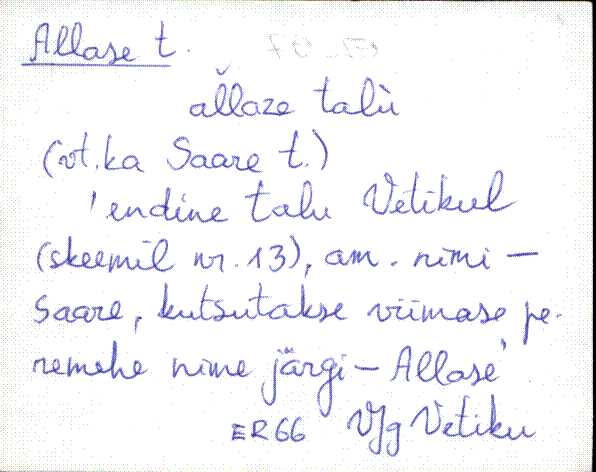 Allase t.
aľlaze talù
(vt. ka Saare t.)
'endine talu Vetikul
(skeemil nr. 13), am. nimi –
Saare, kutsutakse viimase pe-
remehe nime järgi – Allase'
ER66 VJg Vetiku